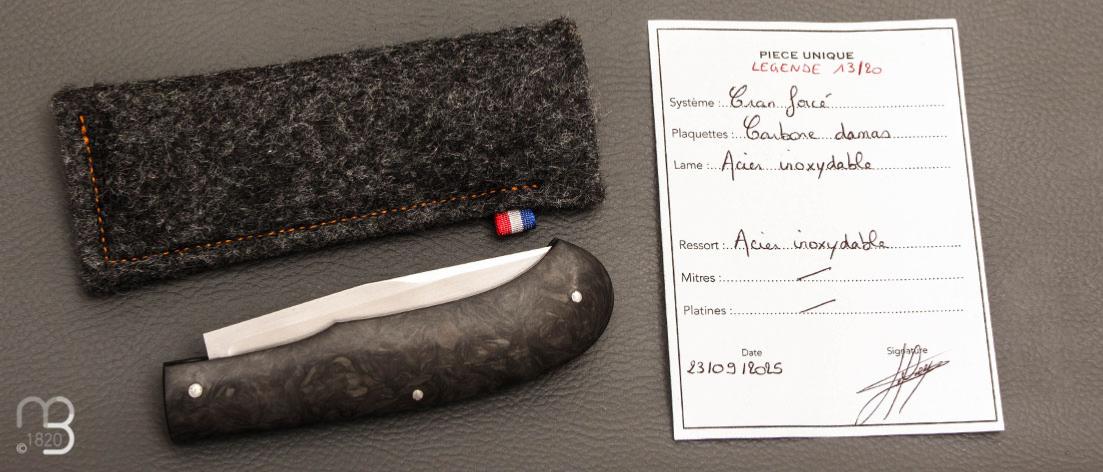 PIECE UNIQUE
LEGENDE 13/20
Système : Cran forcé
Plaquettes : Carbone damas
Lame : Acier inoxydable
Ressort : Acier inoxydable
Mitres :
Platines :
Date Signature
23/09/2025
© 1820